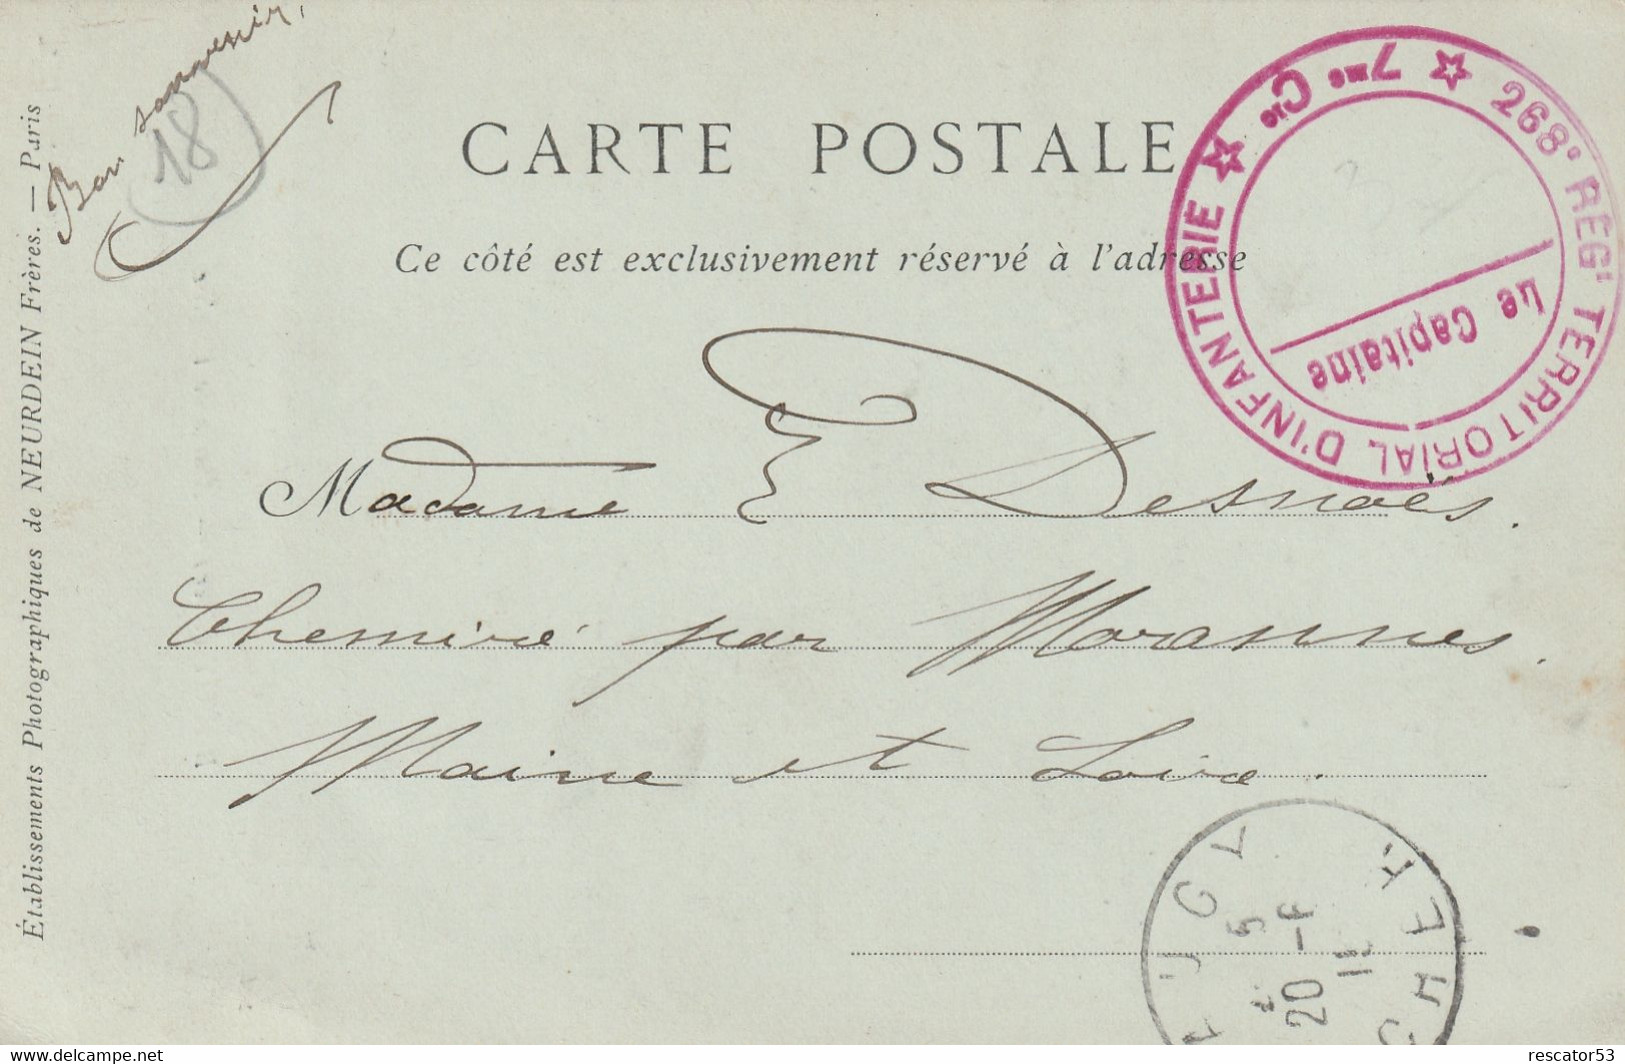 Bon souvenir,
18
Établissements Photographiques de NEURDEIN Frères. — Paris
CARTE POSTALE
Ce côté est exclusivement réservé à l'adresse
268e REGt TERRITORIAL D'INFANTERIE ★ 7me Cie ★
Le Capitaine
Madame E Desnoës.
Chemiré par Morannes.
Maine et Loire.
20 -5
www.delcampe.net
rescator53